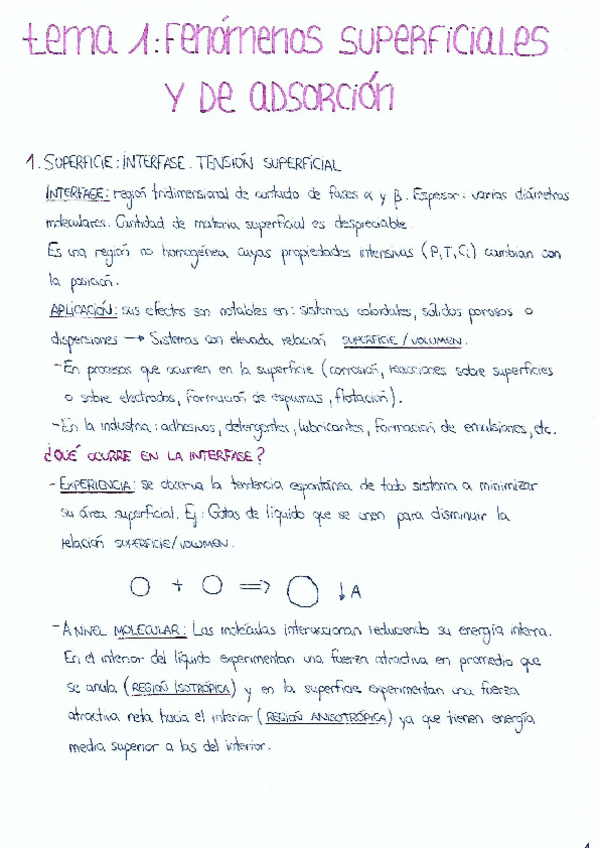 tema 1: Fenómenos SUPERFICIALES
Y DE ADSORCIÓN
1. SUPERFICIE: INTERFASE. TENSIÓN SUPERFICIAL
INTERFASE: región tridimensional de contacto de fases α y β. Espesor: varios diámetros
moleculares. Cantidad de materia superficial es despreciable.
Es una región no homogénea cuyas propiedades intensivas (P,T,Ci) cambian con
la posición.
APLICACIÓN: sus efectos son notables en: sistemas coloidales, sólidos porosos o
dispersiones → Sistemas con elevada relación SUPERFICIE/VOLUMEN.
- En procesos que ocurren en la superficie (corrosión, reacciones sobre superficies
o sobre electrodos, formación de espumas, flotación).
- En la industria: adhesivos, detergentes, lubricantes, formación de emulsiones, etc.
¿QUÉ OCURRE EN LA INTERFASE?
- EXPERIENCIA: se observa la tendencia espontánea de todo sistema a minimizar
su área superficial. Ej: Gotas de líquido que se unen para disminuir la
relación SUPERFICIE/VOLUMEN.
+ ⇒ ↓A
- A NIVEL MOLECULAR: Las moléculas interaccionan reduciendo su energía interna.
En el interior del líquido experimentan una fuerza atractiva en promedio que
se anula (REGIÓN ISOTRÓPICA) y en la superficie experimentan una fuerza
atractiva neta hacia el interior (REGIÓN ANISOTRÓPICA) ya que tienen energía
media superior a las del interior.